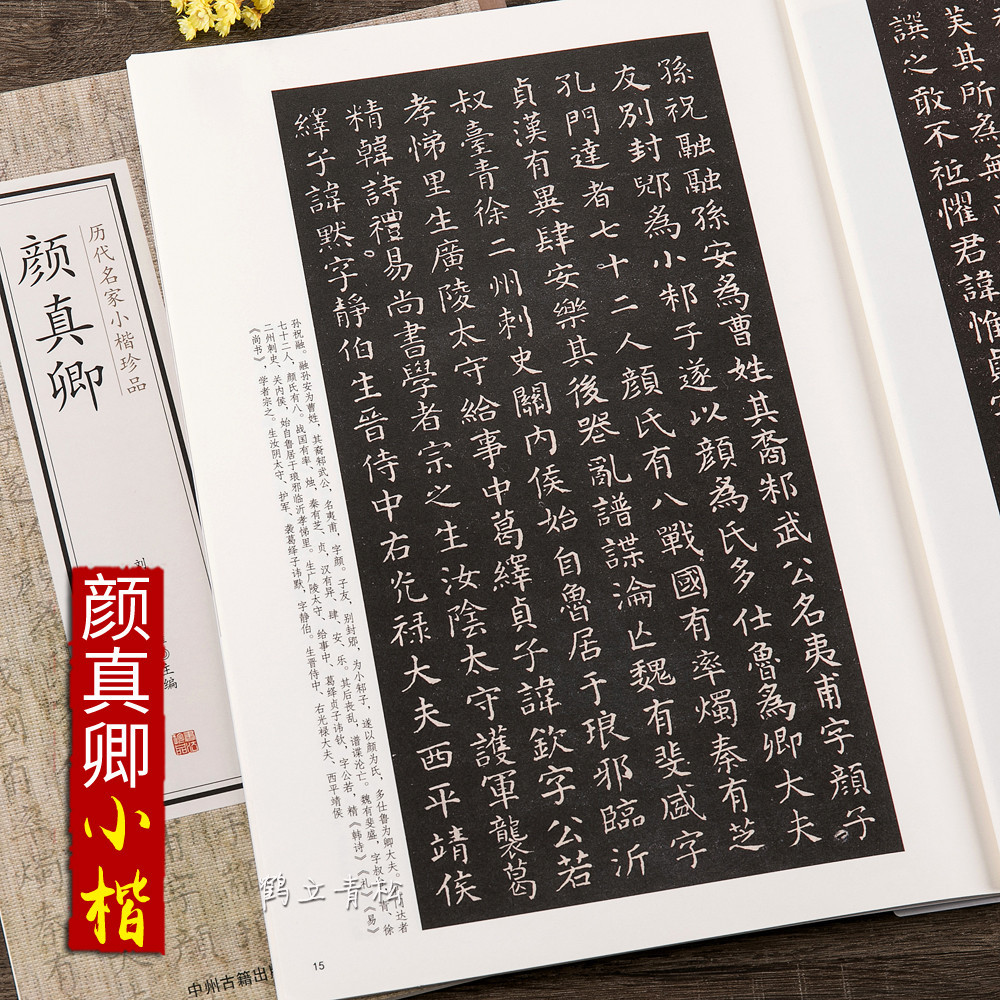 美其所為無
譔之敢不祗懼君諱惟貞字
孫祝融融孫安為曹姓其裔邾武公名夷甫字顏子
友別封郳為小邾子遂以顏為氏多仕魯為卿大夫
孔門達者七十二人顏氏有八戰國有率燭秦有芝
貞漢有異肆安樂其後喪亂譜諜淪亡魏有斐盛字
叔臺青徐二州刺史關內侯始自魯居于琅邪臨沂
孝悌里生廣陵太守給事中葛繹貞子諱欽字公若
精韓詩禮易尚書學者宗之生汝陰太守護軍襲葛
繹子諱默字靜伯生晉侍中右光祿大夫西平靖侯
孙祝融。融孙安为曹姓，其裔邾武公，名夷甫，字颜。子友，别封郳，为小邾子，遂以颜为氏，多仕鲁为卿大夫。门达者
七十二人，颜氏有八。战国有率、烛，秦有芝、贞，汉有异、肆、安、乐。其后丧乱，谱谍沦亡。魏有斐盛，字叔青、徐
二州刺史、关内侯，始自鲁居于琅邪临沂孝悌里。生广陵太守、给事中、葛绎贞子讳钦，字公若，精《韩诗》《礼》《易》
《尚书》，学者宗之。生汝阴太守、护军、袭葛绎子讳默，字静伯。生晋侍中、右光禄大夫、西平靖侯
15
历代名家小楷珍品
颜真卿
刘
主编
中州古籍出
颜真卿
小楷
鹤立青松